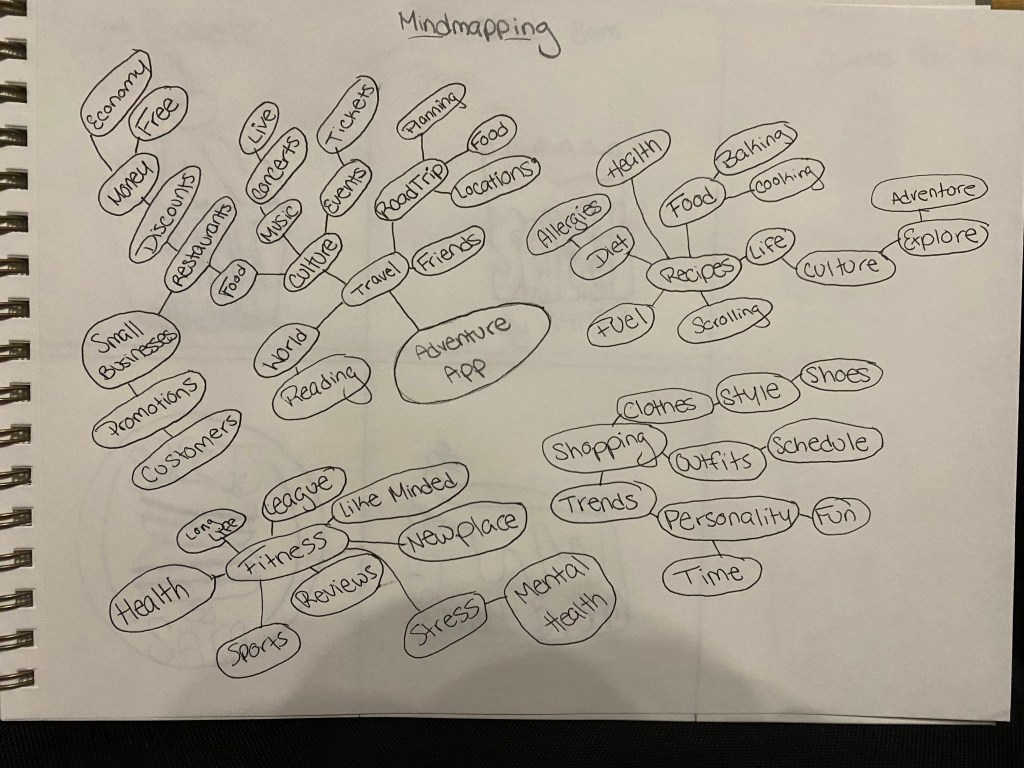 Mindmapping
Economy
Free
Money
Discounts
Restaurants
Food
Small
Businesses
Promotions
Customers
Live
Concerts
Music
Tickets
Events
Culture
Travel
World
Reading
Planning
Food
RoadTrip
Locations
Friends
Adventure
App
Health
Baking
Cooking
Food
Allergies
Diet
Recipes
Life
Culture
Adventore
Explore
Fuel
Scrolling
Clothes
Style
Shoes
Shopping
Outfits
Schedule
Trends
Personality
Fun
Time
League
Like Minded
Long
Life
Fitness
New place
Health
Reviews
Sports
Stress
Mental
Health